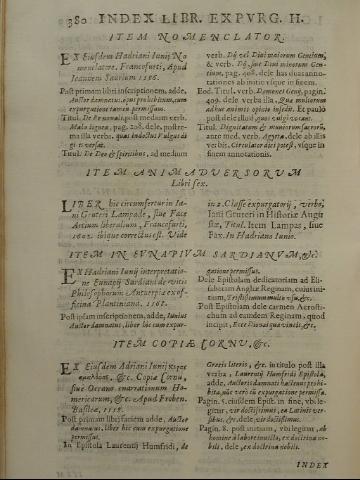 380 INDEX LIBR. EXPVRG. H.
ITEM NOMENCLATOR.
EX Eiusdem Hadriani Iunij No
menclatore. Francofurti, Apud
Ioannem Saurium 1596.
Post primam libri inscriptionem, adde,
Auctor damnatus, opus prohibitum, cum
expurgatione tamen permissum.
Titul. De Re nautica, post medium verb.
Malo ligneus, pag. 208. dele, postre-
ma illa verba,
Titul. De Deo & spiritibus, ad medium
verb. Dij, vel Divi maiorum Gentium,
& verb. Dij, siue Divi minorum Gentium
tium, pag. 498. dele has duas anno-
tationes ab initio vsque in finem.
Eod. Titul. verb. Demones Geny, pagin.
409. dele verba illa,
Et paulò
post dele illud,
Titul. Dignitatum & muniorum sacrorũ,
ante mod. verb. Agyrta, dele ab illis
verbis, Circulator dici potest, vsque in
finem annotationis.
ITEM ANIMADVERSORVM
Libri sex.
LIBER hic circumfertur in Ia-
ni Gruteri Lampade, siue Face
Artium liberalium, Francofurti,
1602. ibique correctus est. Vide
in 2. Classe expurgatorij, verbo,
Iani Gruteri in Historiæ Augu
stæ, Titul. Item Lampas, siue
Fax. In Hadriano Iunio.
ITEM IN EVNAPIVM SARDIANVM, &c.
EX Hadriani Iunij interpretatio-
ne Eunapij Sardiani de vitis
Philosophorum. Antuerpiæ ex of-
ficina Plantiniana, 1568.
Post ipsam inscriptionem, adde, Iunius
Auctor damnatus, liber hic cum expur-
gatione permissus.
Dele Epistolam dedicatoriam ad Eli-
sabetam Angliæ Reginam, cuius ini-
tium,
Post Epistolam dele carmen Acrosti-
chum ad eamdem Reginam, quod
incipit,
ITEM COPIÆ CORNV, &c.
EX Eiusdem Adriani Iunij
&c. Copiæ Cornu,
siue Oceano enarrationum Ho-
mericarum, &c. Apud Froben.
Basileæ, 1558.
Post primam libri faciem adde, Auctor
damnatus, liber hic cum expurgatione
permissus.
In Epistola Laurentij Humfridi, de
Græcis literis, &c. in titulo post illa
verba, Laurentij Humfridi Epistola,
adde, Auctoris damnati hactenus prohi-
bita, nunc verò cum expurgatione permissa.
Pagin. 5. eiusdem Epist. in fine, vbi le-
gitur, vir doctissimus, ea Latinis ver-
bis, &c. dele, vir doctissimus.
Pagin. 8. post initium, vbi legitur, ab
homine
dele,
INDEX